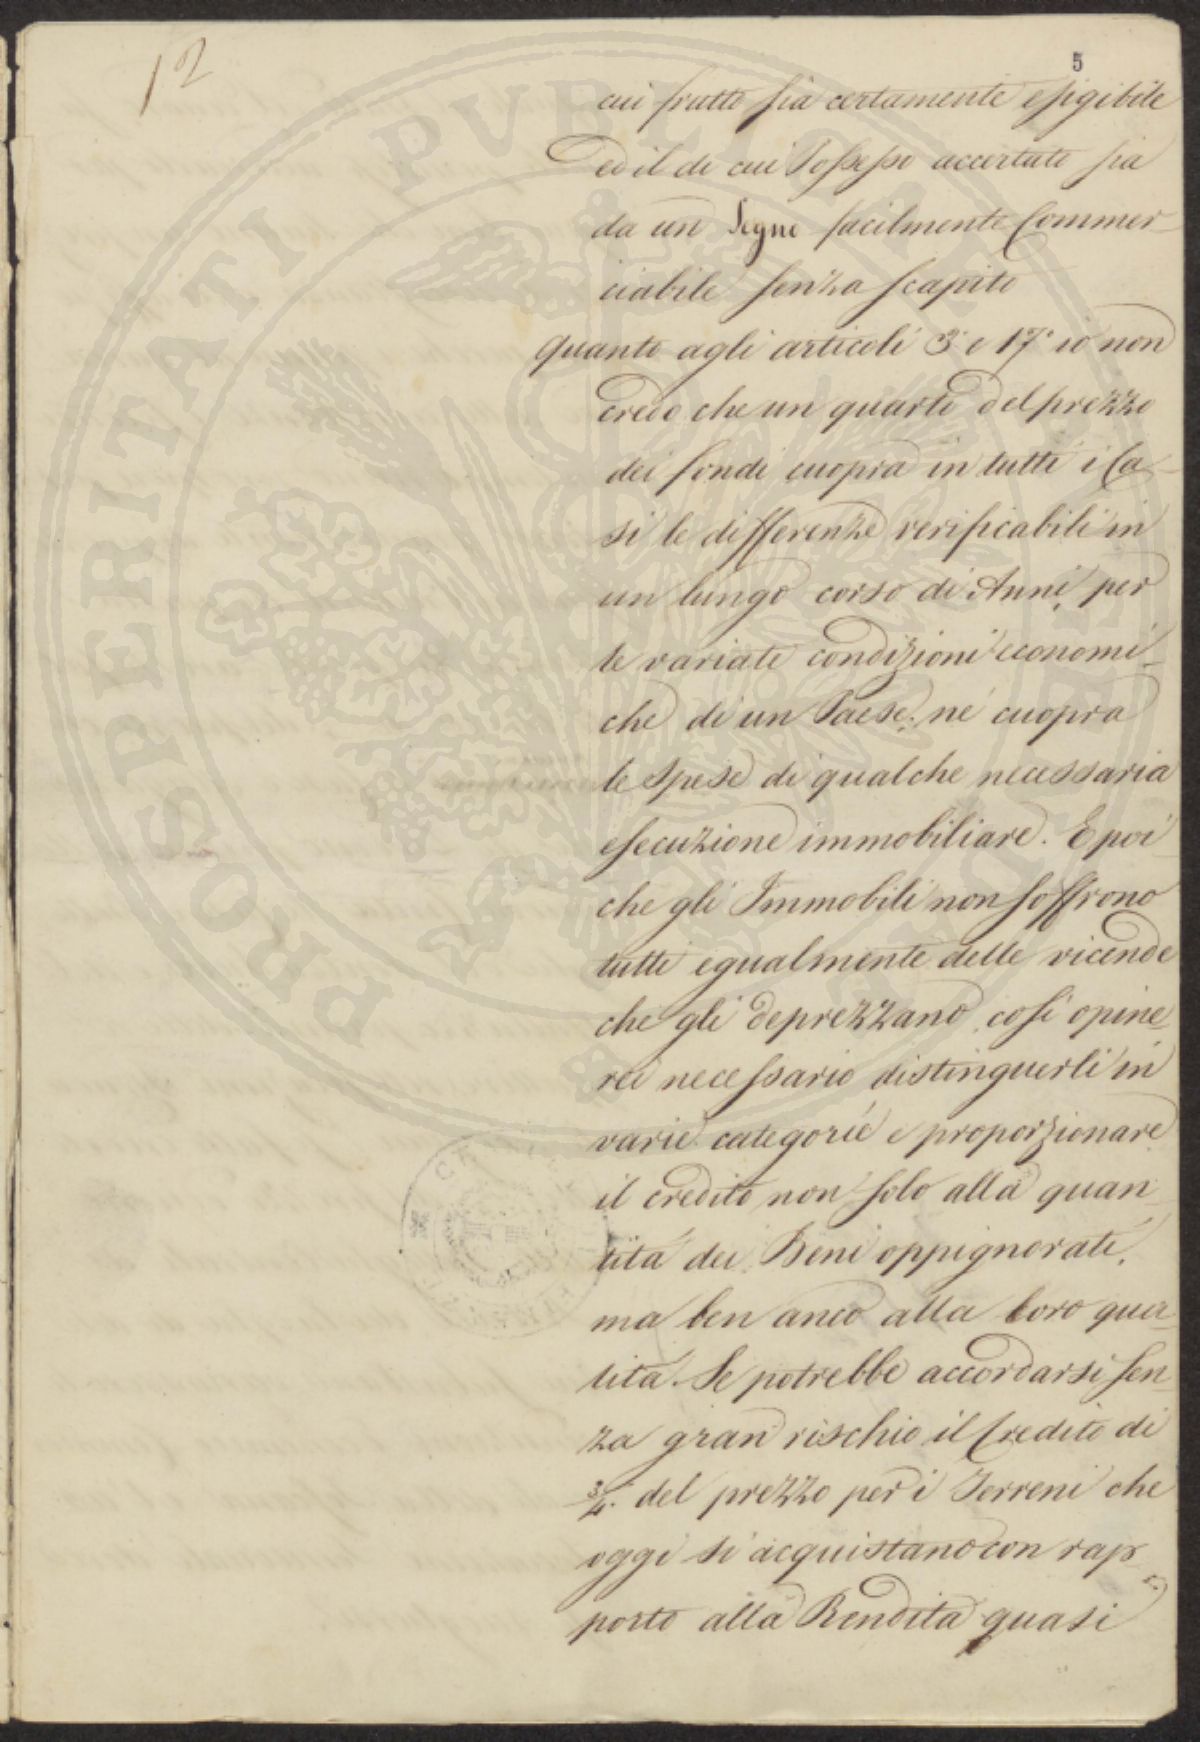 12
5
cui frutto sia certamente esigibile
ed il di cui Possesso accertato sia
da un Segno facilmente Commer-
ciabile senza scapito
Quanto agli articoli 3° e 17° io non
credo che un quarto del prezzo
dei fondi cuopra in tutti i Ca-
si le differenze verificabili in
un lungo corso di Anni, per
le variate condizioni economi-
che di un Paese; né cuopra
le spese di qualche necessaria
esecuzione immobiliare. E poi
che gli Immobili non soffrono
tutti egualmente delle vicende
che gli deprezzano, così opine-
rei necessario distinguerli in
varie categorie e proporzionare
il credito non solo alla quan-
tità dei Beni oppignorati,
ma ben anco alla loro qua-
lità. Se potrebbe accordarsi sen-
za gran rischio il Credito di
3/4 del prezzo per i Terreni che
oggi si acquistano con rap-
porto alla Rendita quasi
PROSPERITATI PVBLICAE